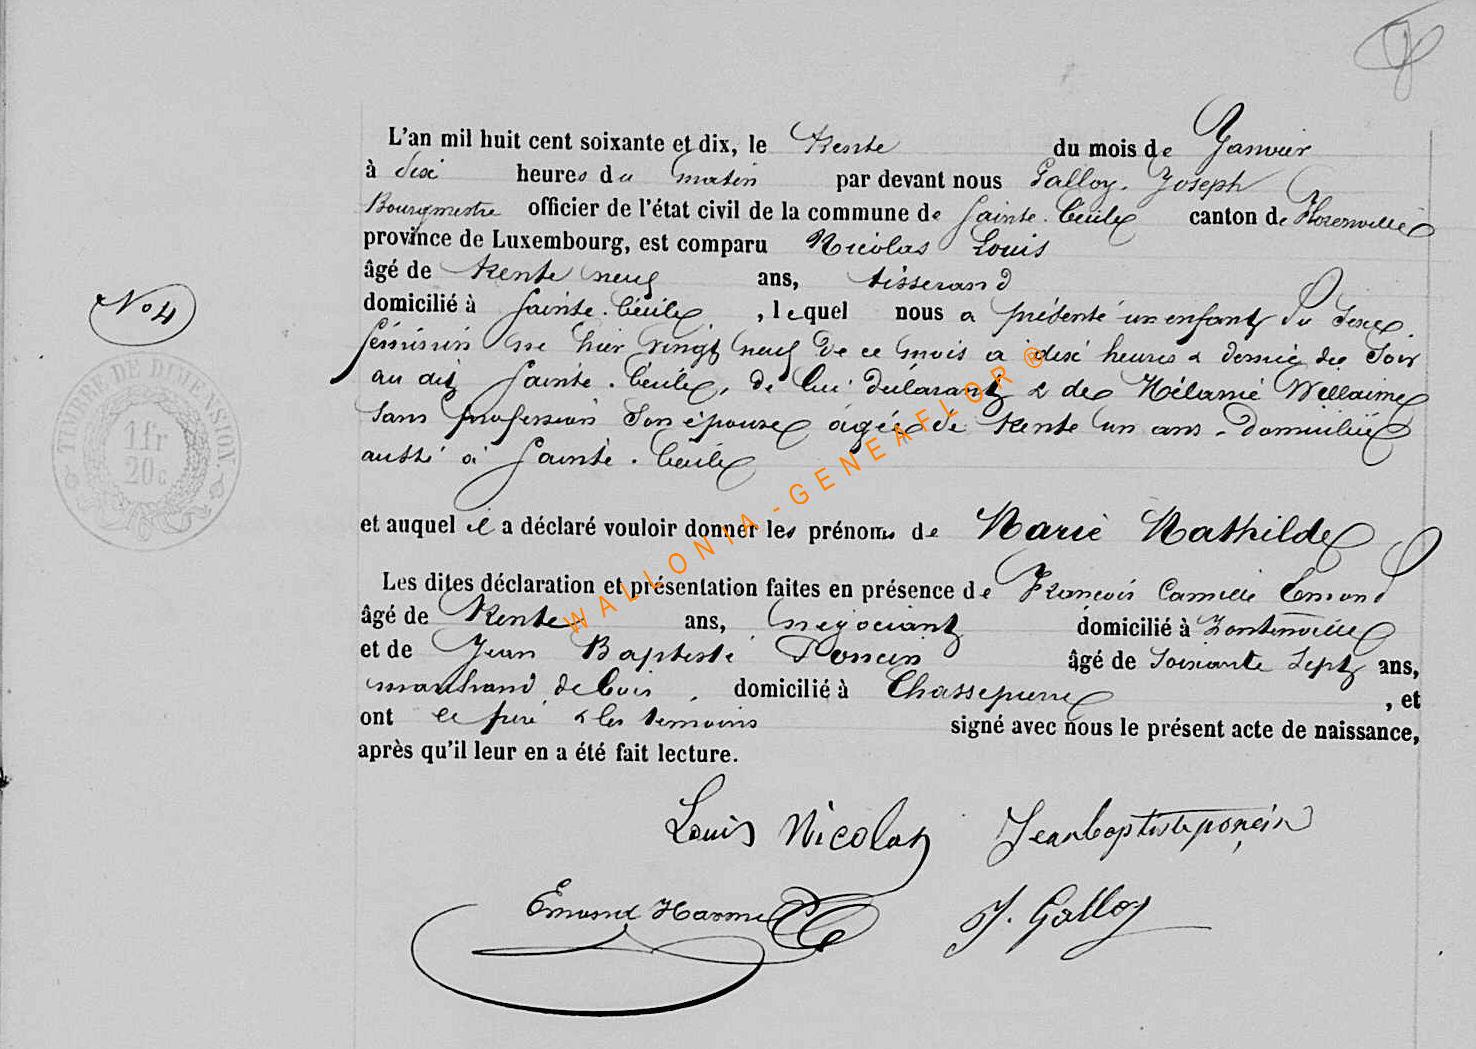 L'an mil huit cent soixante et dix, le trente du mois de Janvier
à dix heures du matin par devant nous Galloy. Joseph
Bourgmestre officier de l'état civil de la commune de Sainte. Cécile canton de Florenville
province de Luxembourg, est comparu Nicolas Louis
âgé de trente neuf ans, tisserand
domicilié à Sainte. Cécile , lequel nous a présenté un enfant du Sexe
N° 4
féminin né hier vingt neuf de ce mois à dix heures & demie du Soir
au dit Sainte. Cécile, de lui déclarant & de Mélanie Wellaime
Sans profession Son épouse âgée de trente un ans. domiciliée
aussi à Sainte. Cécile
TIMBRE DE DIMENSION.
1 fr
20 c
et auquel il a déclaré vouloir donner les prénoms de Marie Mathilde
Les dites déclaration et présentation faites en présence de François Camille Emond
âgé de trente ans, négociant domicilié à Fontenoille
et de Jean Baptiste Poncin âgé de Soixante Sept ans,
marchand de bois, domicilié à Chassepierre , et
ont le père & les témoins signé avec nous le présent acte de naissance,
après qu'il leur en a été fait lecture.
Louis Nicolas Jean baptiste ponçin
Emond J. Galloy
WALLONIA-GENEAFLOR®